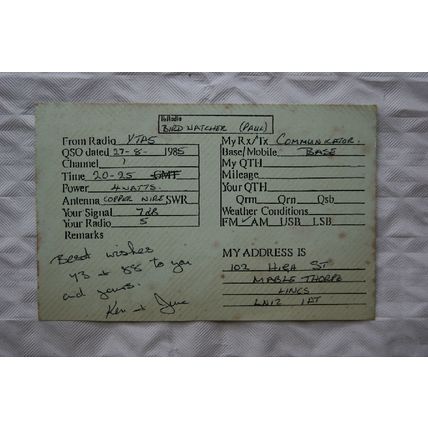 To Radio
BIRD WATCHER (PAUL)
From Radio YTAS
QSO dated 27-8- 1985
Channel 1
Time 20-25 GMT
Power 4 WATTS.
Antenna COPPER WIRE SWR
Your Signal 7dB
Your Radio 5
Remarks
Best wishes
73 + 88 to you
and yours.
Ken + June
My Rx/Tx COMMUNICATOR.
Base/Mobile BASE
My QTH
Mileage
Your QTH
Qrm Qrn Qsb
Weather Conditions
FM ✓ AM USB LSB
MY ADDRESS IS
102 HIGH ST
MABLETHORPE
LINCS
LN12 1AT